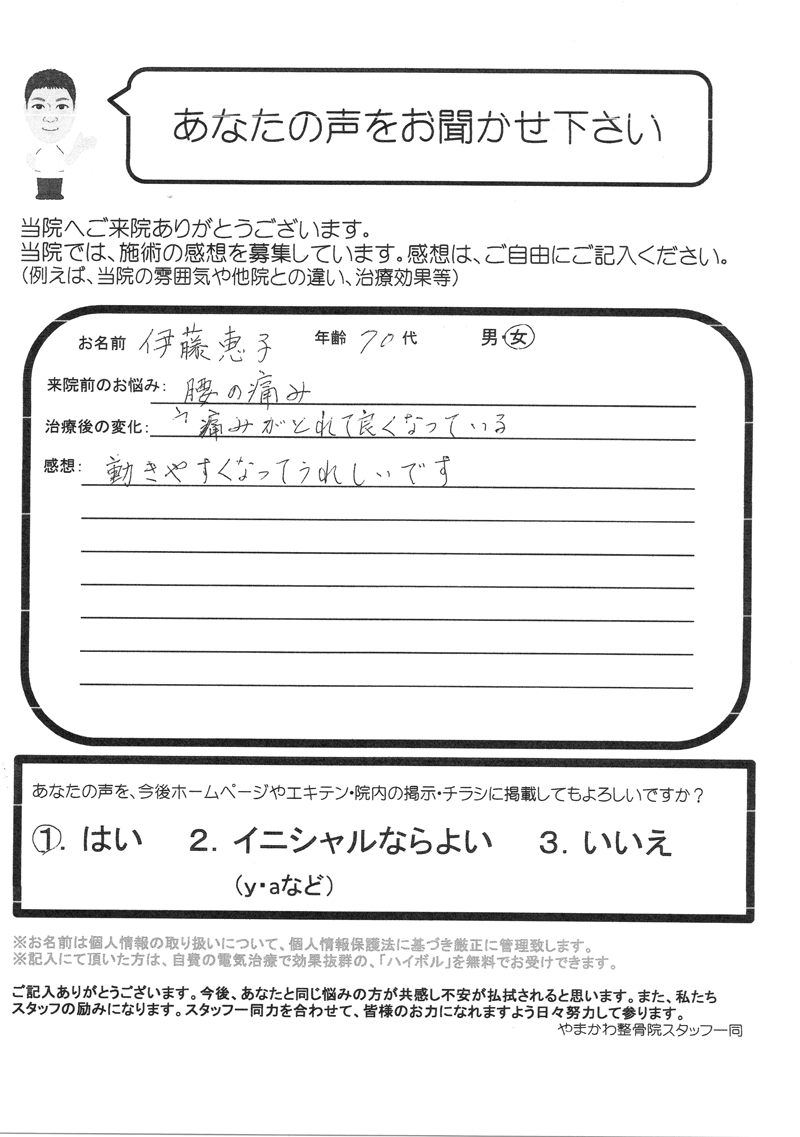 あなたの声をお聞かせ下さい
当院へご来院ありがとうございます。
当院では、施術の感想を募集しています。感想は、ご自由にご記入ください。
(例えば、当院の雰囲気や他院との違い、治療効果等)
お名前 伊藤恵子 年齢 70代 男・女
来院前のお悩み: 腰の痛み
治療後の変化: 痛みがとれて良くなっている
感想: 動きやすくなってうれしいです
あなたの声を、今後ホームページやエキテン・院内の掲示・チラシに掲載してもよろしいですか?
1. はい 2. イニシャルならよい 3. いいえ
(y・aなど)
※お名前は個人情報の取り扱いについて、個人情報保護法に基づき厳正に管理致します。
※記入にて頂いた方は、自費の電気治療で効果抜群の、「ハイボル」を無料でお受けできます。
ご記入ありがとうございます。今後、あなたと同じ悩みの方が共感し不安が払拭されると思います。また、私たち
スタッフの励みになります。スタッフ一同力を合わせて、皆様のお力になれますよう日々努力して参ります。
やまかわ整骨院スタッフ一同